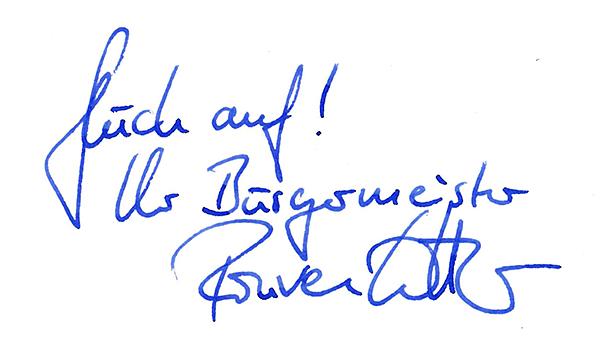 Glück auf!
Ihr Bürgermeister
Rouven